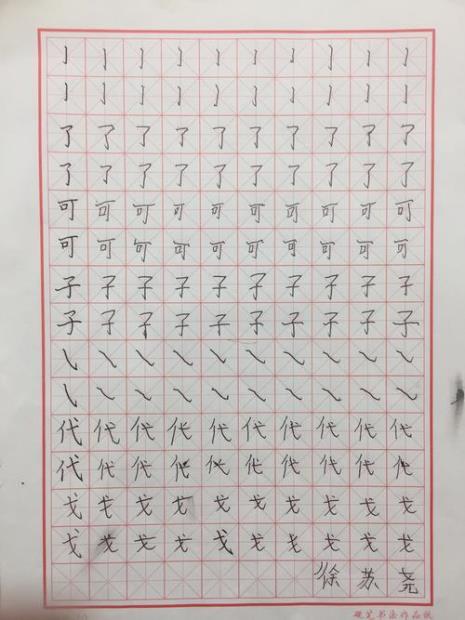 亅亅亅亅亅亅亅亅亅亅
亅亅亅亅亅亅亅亅亅亅
了了了了了了了了了了
了了了了了了了了了了
可可可可可可可可可可
可可可可可可可可可可
子子子子子子子子子子
子子子子子子子子子子
㇂㇂㇂㇂㇂㇂㇂㇂㇂㇂
㇂㇂㇂㇂㇂㇂㇂㇂㇂㇂
代代代代代代代代代代
代代代代代代代代代代
戈戈戈戈戈戈戈戈戈戈
戈戈戈戈戈戈戈戈戈戈
徐苏尧
硬笔书法作品纸